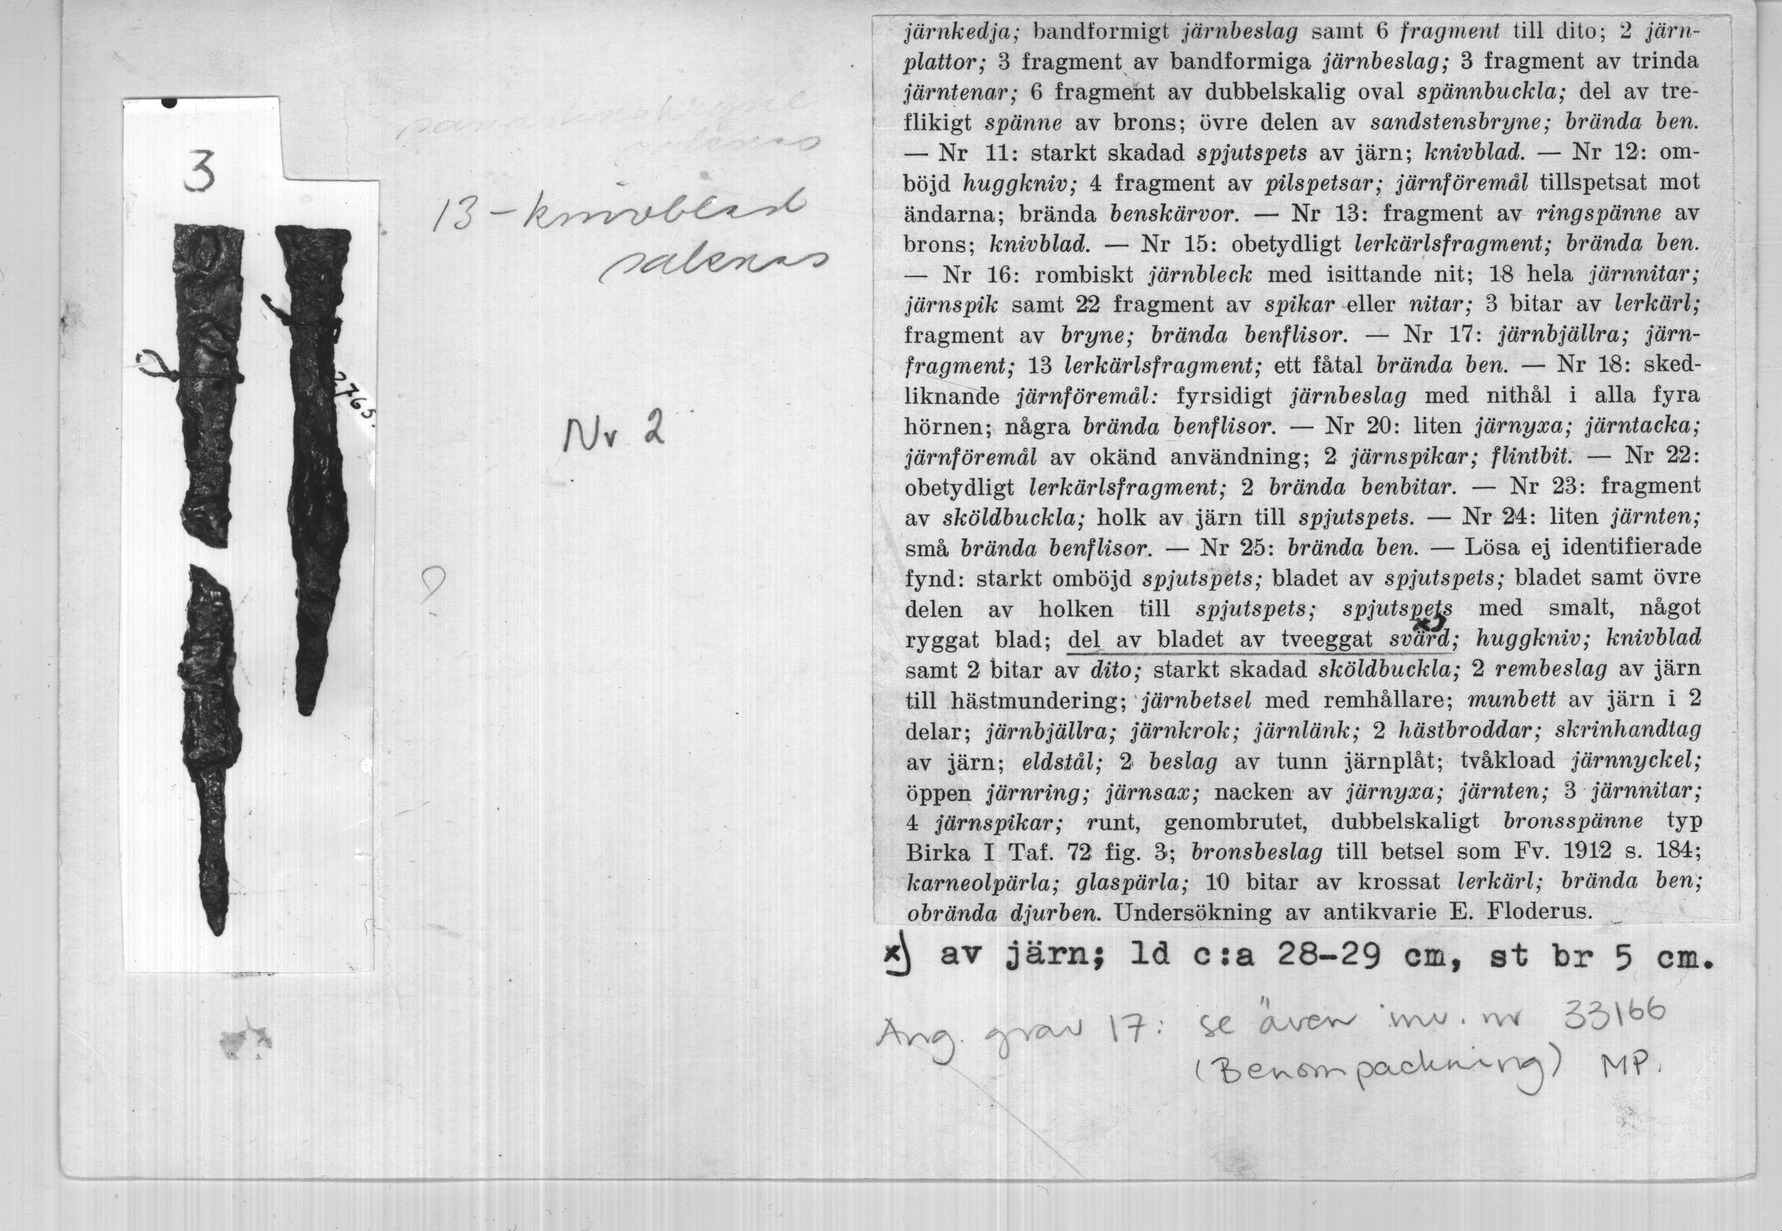 3
2765.
13 - knivblad
saknas
Nr 2
?
järnkedja; bandformigt järnbeslag samt 6 fragment till dito; 2 järn-
plattor; 3 fragment av bandformiga järnbeslag; 3 fragment av trinda
järntenar; 6 fragment av dubbelskalig oval spännbuckla; del av tre-
flikigt spänne av brons; övre delen av sandstensbryne; brända ben.
— Nr 11: starkt skadad spjutspets av järn; knivblad. — Nr 12: om-
böjd huggkniv; 4 fragment av pilspetsar; järnföremål tillspetsat mot
ändarna; brända benskärvor. — Nr 13: fragment av ringspänne av
brons; knivblad. — Nr 15: obetydligt lerkärlsfragment; brända ben.
— Nr 16: rombiskt järnbleck med isittande nit; 18 hela järnnitar;
järnspik samt 22 fragment av spikar eller nitar; 3 bitar av lerkärl;
fragment av bryne; brända benflisor. — Nr 17: järnbjällra; järn-
fragment; 13 lerkärlsfragment; ett fåtal brända ben. — Nr 18: sked-
liknande järnföremål: fyrsidigt järnbeslag med nithål i alla fyra
hörnen; några brända benflisor. — Nr 20: liten järnyxa; järntacka;
järnföremål av okänd användning; 2 järnspikar; flintbit. — Nr 22:
obetydligt lerkärlsfragment; 2 brända benbitar. — Nr 23: fragment
av sköldbuckla; holk av järn till spjutspets. — Nr 24: liten järnten;
små brända benflisor. — Nr 25: brända ben. — Lösa ej identifierade
fynd: starkt omböjd spjutspets; bladet av spjutspets; bladet samt övre
delen av holken till spjutspets; spjutspets med smalt, något
ryggat blad; del av bladet av tveeggat svärd x); huggkniv; knivblad
samt 2 bitar av dito; starkt skadad sköldbuckla; 2 rembeslag av järn
till hästmundering; järnbetsel med remhållare; munbett av järn i 2
delar; järnbjällra; järnkrok; järnlänk; 2 hästbroddar; skrinhandtag
av järn; eldstål; 2 beslag av tunn järnplåt; tvåkload järnnyckel;
öppen järnring; järnsax; nacken av järnyxa; järnten; 3 järnnitar;
4 järnspikar; runt, genombrutet, dubbelskaligt bronsspänne typ
Birka I Taf. 72 fig. 3; bronsbeslag till betsel som Fv. 1912 s. 184;
karneolpärla; glaspärla; 10 bitar av krossat lerkärl; brända ben;
obrända djurben. Undersökning av antikvarie E. Floderus.
x) av järn; ld c:a 28-29 cm, st br 5 cm.
Ang. grav 17: se även inv. nr 33166
(Benompackning) MP.